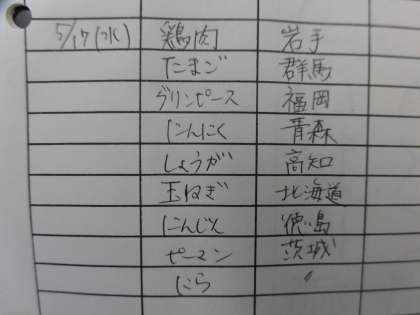 5/17(水) 鶏肉 岩手
たまご 群馬
グリンピース 福岡
にんにく 青森
しょうが 高知
玉ねぎ 北海道
にんじん 徳島
ピーマン 茨城
にら 〃